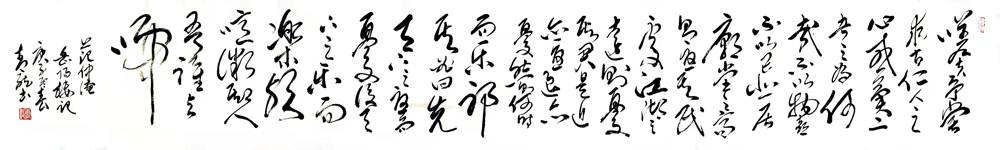 嗟夫予嘗
求古仁人之
心或異二
者之為何
哉不以物喜
不以己悲居
廟堂之高
則憂其民
處江湖之
遠則憂
其君是進
亦憂退亦
憂然則何時
而乐耶
其必曰先
天下之憂而
憂後天
下之乐而
樂乎
噫微斯人
吾誰与
歸
范仲淹
岳阳楼记